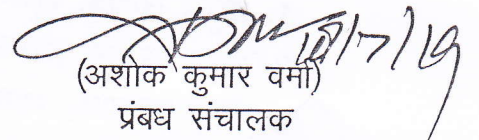 18/7/19
(अशोक कुमार वर्मा)
प्रंबध संचालक